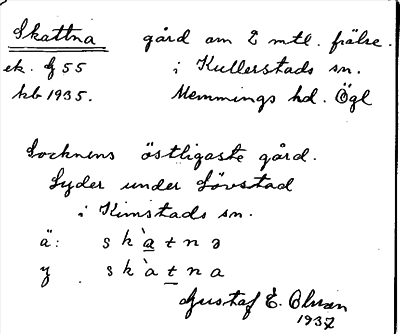 Skattna gård om 2 mtl. frälse.
ek. bl 55 i Kullerstads sn.
kb 1935. Memmings hd. Ögl
Socknens östligaste gård.
Lyder under Lövstad
i Kimstads sn.
ä: skàtnə
y skàtna
Gustaf E. Ohsén
1937